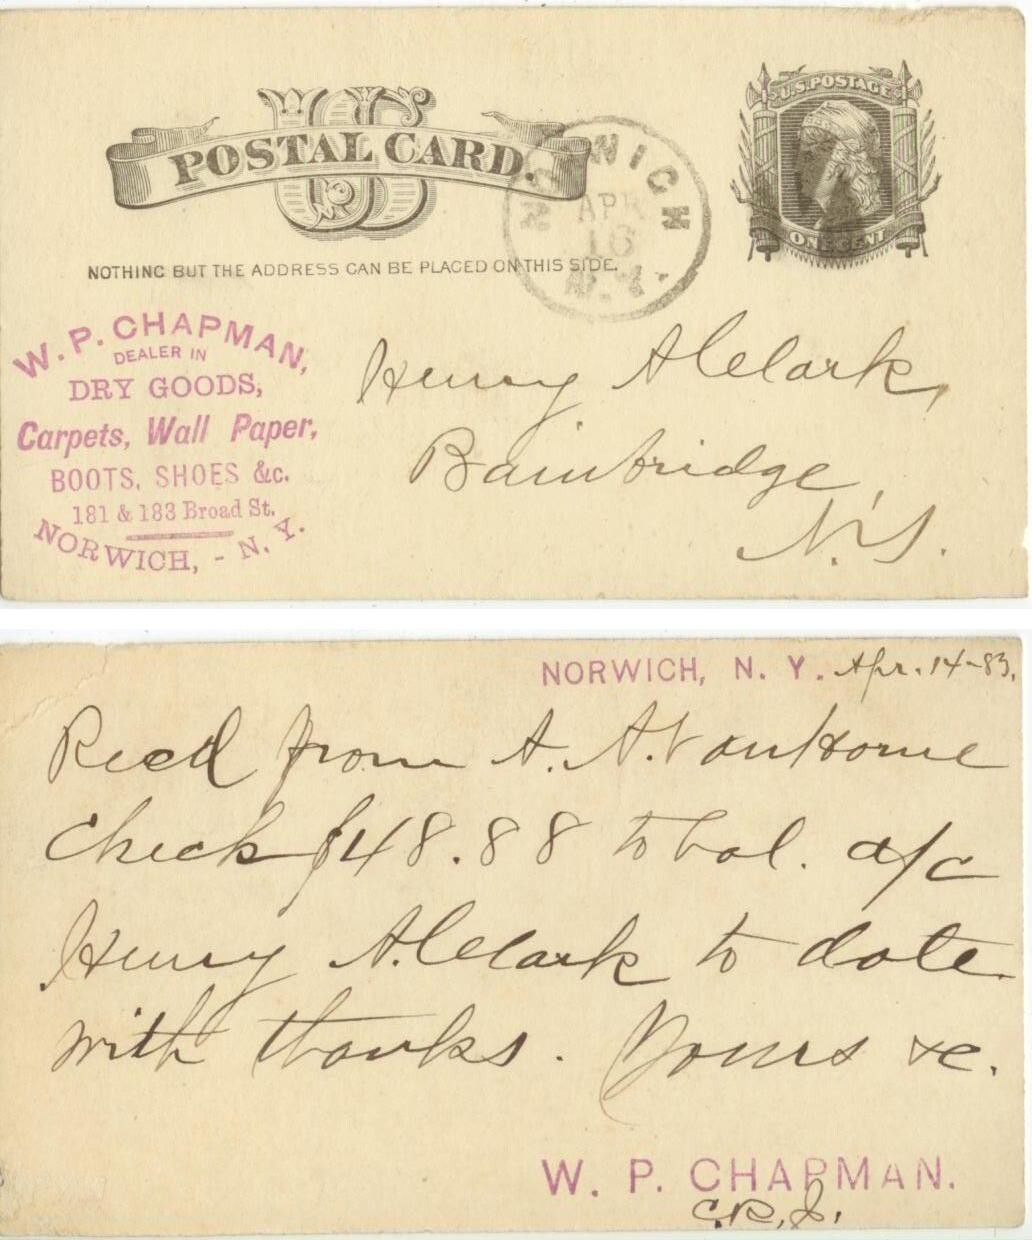 US
POSTAL CARD.
NOTHING BUT THE ADDRESS CAN BE PLACED ON THIS SIDE.
U.S. POSTAGE
ONE CENT
NORWICH
APR
16
N.Y.
W. P. CHAPMAN,
DEALER IN
DRY GOODS,
Carpets, Wall Paper,
BOOTS, SHOES &c.
181 & 183 Broad St.
NORWICH, - N. Y.
Henry A Clark,
Bainbridge,
N.Y.
NORWICH, N. Y. Apr. 14-83.
Recd from A. A. VanHorne
Check $48.88 to bal. a/c
Henry A. Clark to date
with thanks. Yours &c.
W. P. CHAPMAN.
C.R.J.